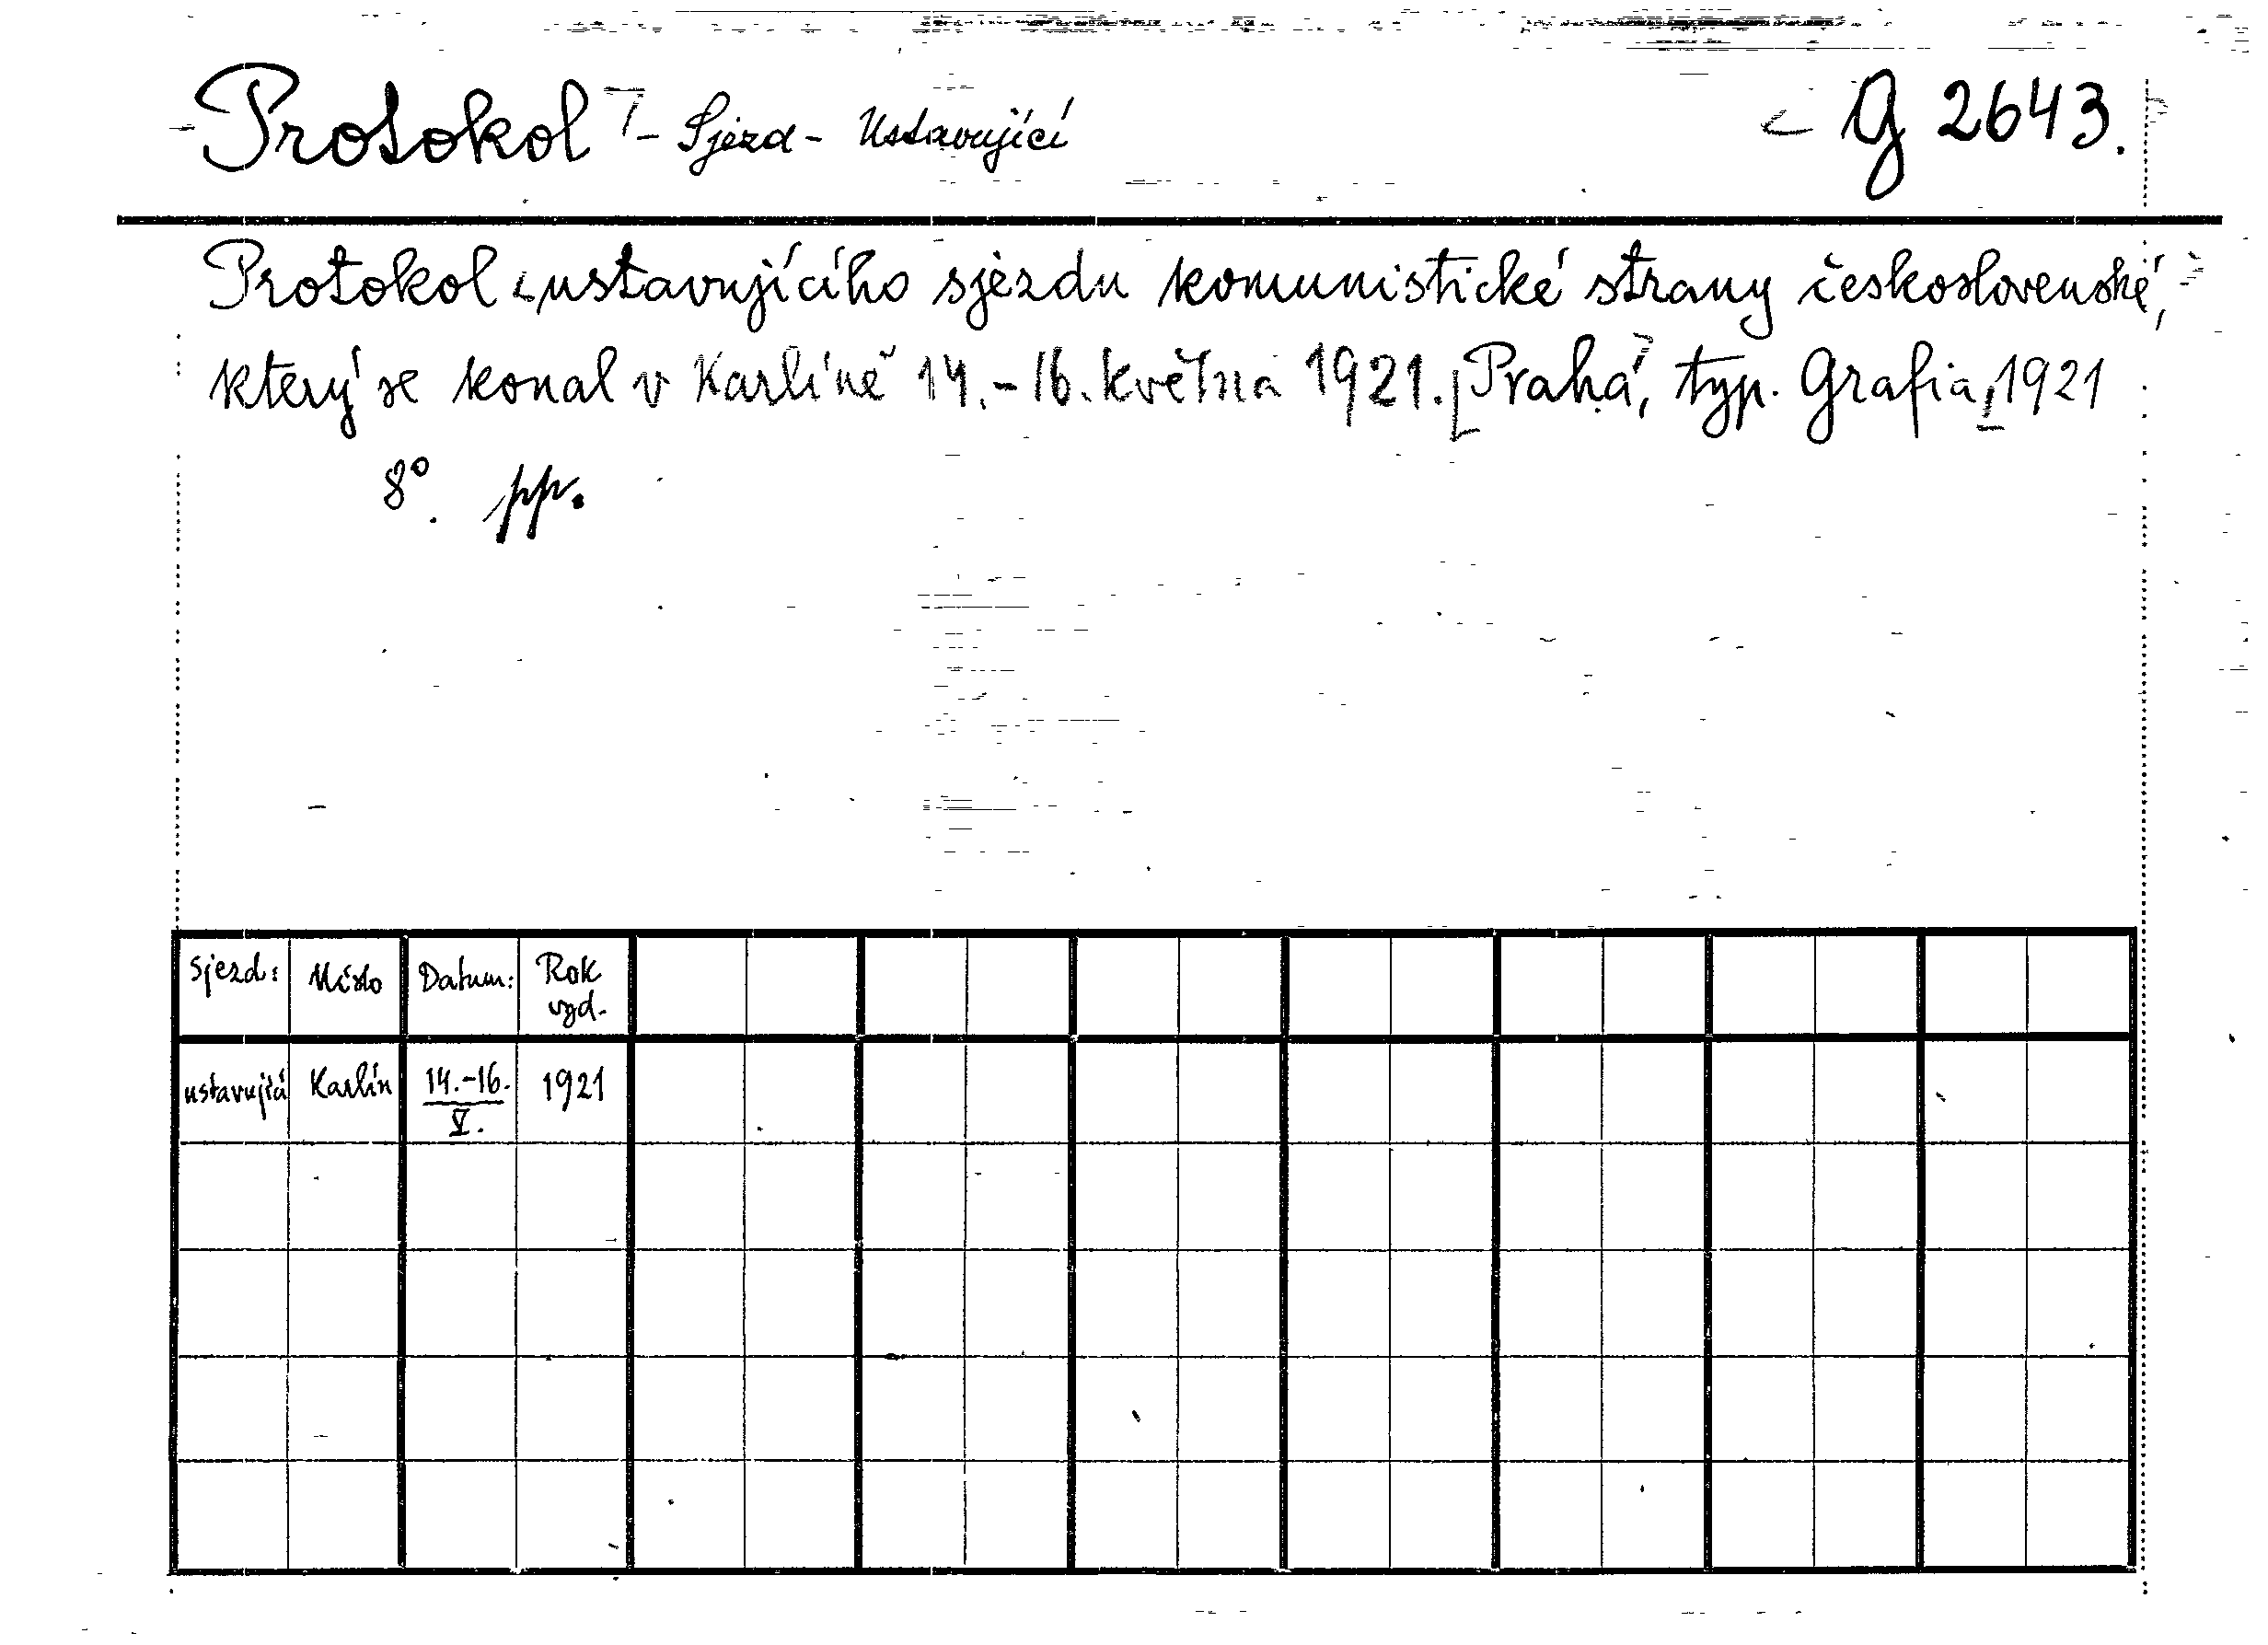 Protokol - Sjezd - Ustavující G 2643.
Protokol ustavujícího sjezdu komunistické strany československé,
který se konal v Karlíně 14.-16. května 1921. [Praha, typ. Grafia, 1921
8°. pp.
Sjezd: Místo Datum: Rok
vyd.
ustavující Karlín 14.-16. 1921
V.